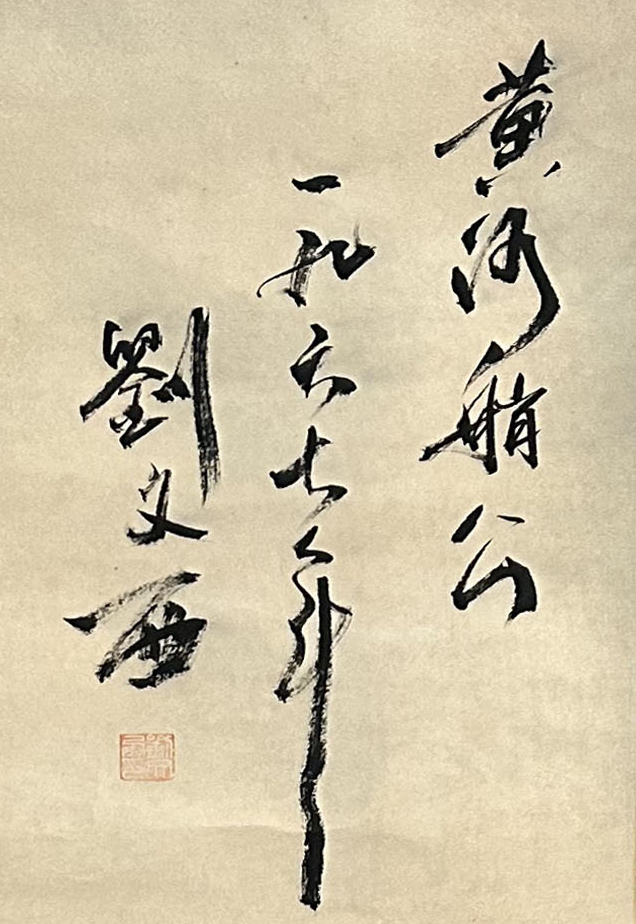 黄河艄公
一九六七年
劉文西